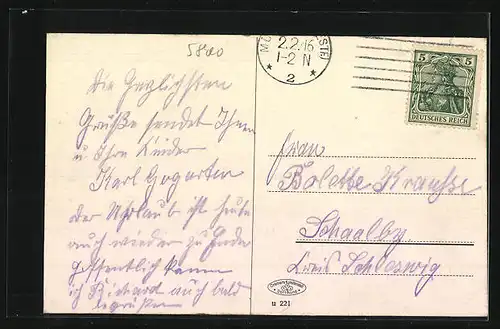 5800
2.2.16
1-2 N
* 2 *
5 5
DEUTSCHES REICH
Die herzlichsten
Grüße sendet Ihnen
u Ihre Kinder
Karl Gogarten
der Uhrlaub ist heute
auch wieder zu Ende
hoffentlich kann
ich Richard auch bald
begrüßen
Frau
Bolette Krauſse
Schaalby
Kreis Schleswig
u 221